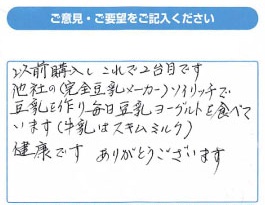 ご意見・ご要望をご記入ください
以前購入し これで2台目です
他社の(完全豆乳メーカー)ソイリッチで
豆乳を作り毎日豆乳ヨーグルトを食べて
います(牛乳はスキムミルク)
健康です ありがとうございます